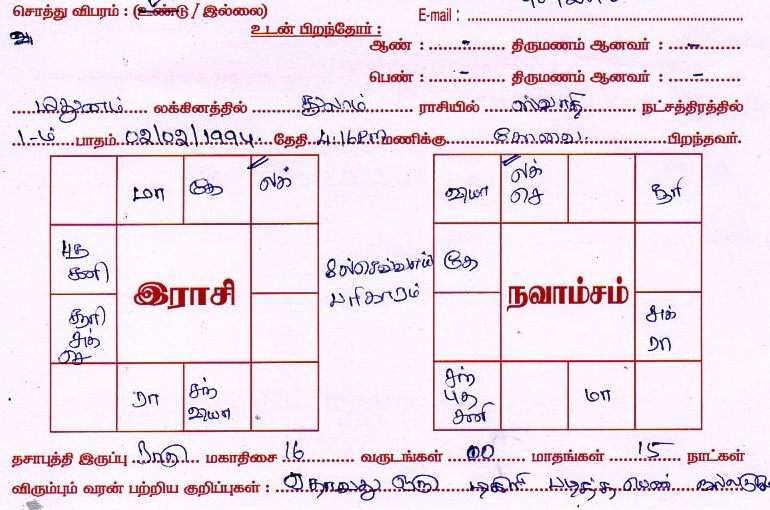 சொத்து விபரம் : (உண்டு / இல்லை)
E-mail :
உடன் பிறந்தோர் :
ஆண் : - திருமணம் ஆனவர் : -
பெண் : - திருமணம் ஆனவர் : -
மிதுனம் லக்கினத்தில் துலாம் ராசியில் ஸ்வாதி நட்சத்திரத்தில்
1-ம் பாதம் 02/02/1994 தேதி 4.16PM மணிக்கு கோவை பிறந்தவர்.
மா கே லக்
புத சனி
இராசி
சூரி சுக் செ
ரா சந் வியா
8ல் செவ்வாய் பரிகாரம்
வியா லக் செ சூரி
கே
நவாம்சம்
சுக் ரா
சந் புத சனி மா
தசாபுத்தி இருப்பு ராகு மகாதிசை 16 வருடங்கள் 00 மாதங்கள் 15 நாட்கள்
விரும்பும் வரன் பற்றிய குறிப்புகள் : ஏதாவது ஒரு டிகிரி படித்த பெண்